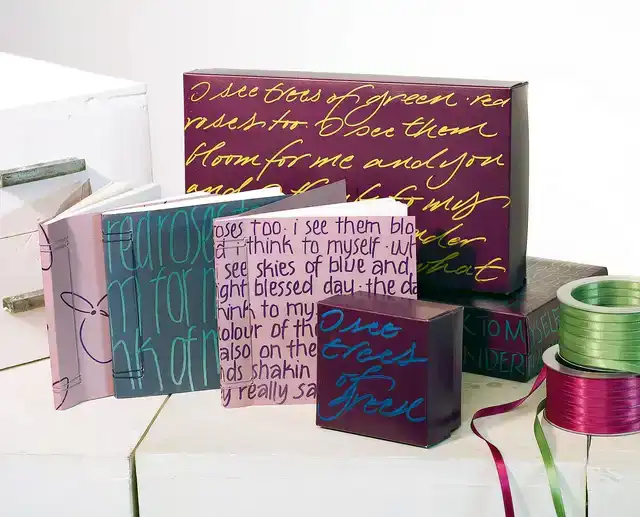 I see trees of green red
roses too. I see them
bloom for me and you
and to my
wonder
what
red roses
m for m
nk of m
oses too. i see them blo
d i think to myself. wh
see skies of blue and
ght blessed day. the da
hink to my
olour of th
also on the
ds shakin
y really sa
I see
trees
of
green
K TO MYSELF
NDER